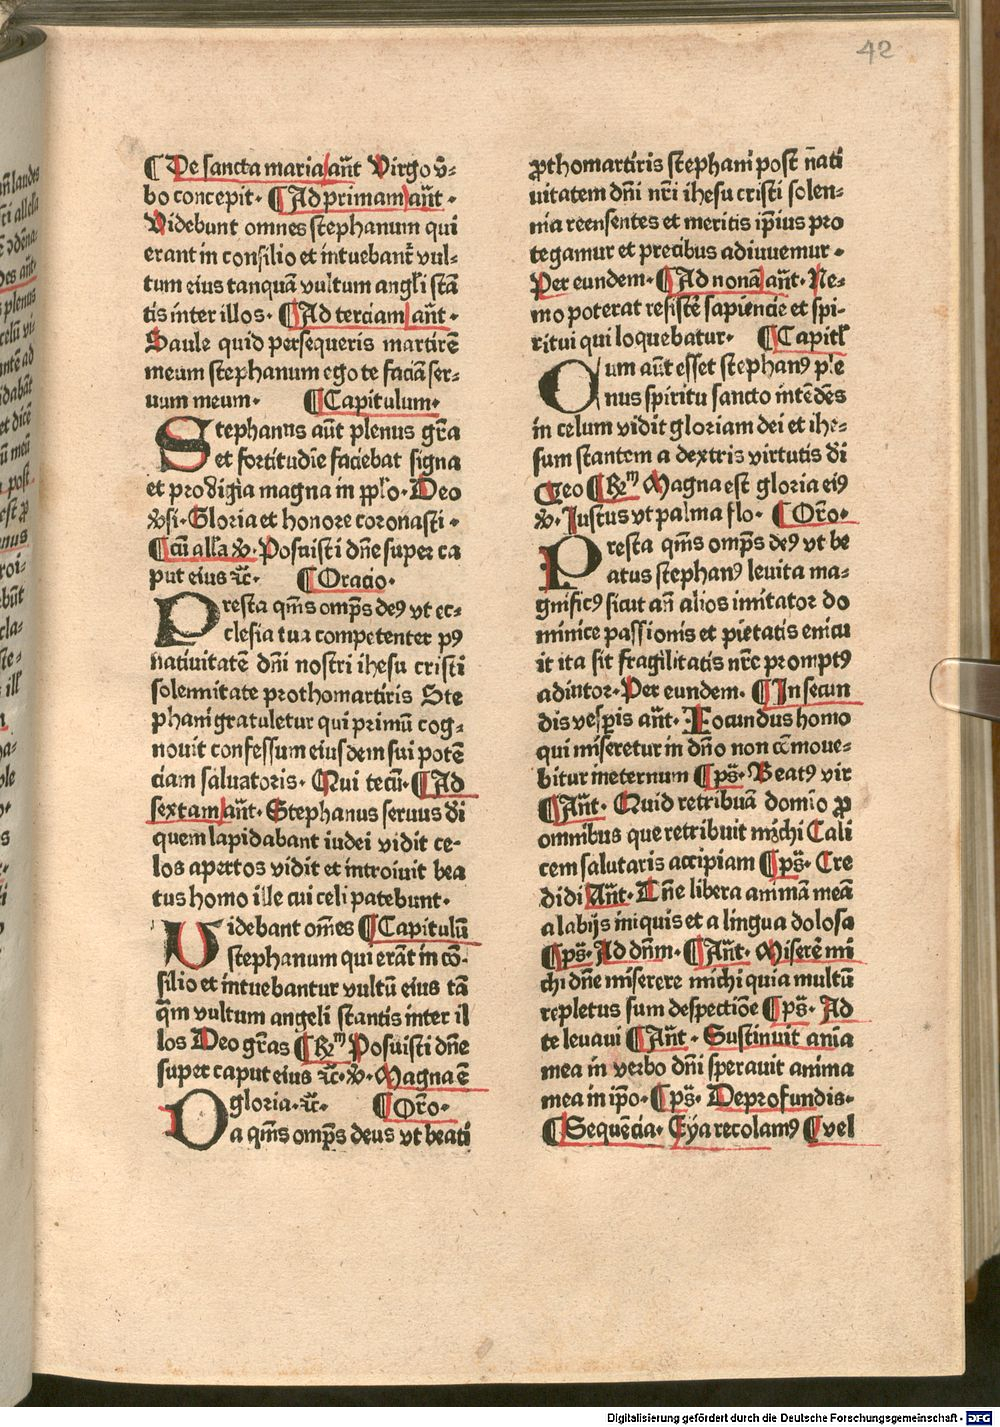 42
¶ De sancta maria añt Virgo ṽ-
bo concepit. ¶ Ad primam añt.
Videbunt omnes stephanum qui
erant in consilio et intuebant᷑ vul-
tum eius tanquã vultum angl̃i stã
tis inter illos. ¶ Ad terciam añt.
Saule quid persequeris martirẽ
meum stephanum ego te faciã ser-
uum meum. ¶ Capitulum.
Stephanus aũt plenus gr̃a
et fortitudĩe faciebat signa
et prodigia magna in pp̃lo. Deo
℣si. Gloria et honore coronasti.
¶ cũ all̃a ℣. Posuisti dñe super ca
put eius ⁊c̃. ¶ Oracio.
Presta qm̃s omp̃s deꝰ vt ec-
clesia tua competenter pꝰ
natiuitatẽ dñi nostri ihesu cristi
solennitate prothomartiris Ste
phani gratuletur qui primũ cog-
nouit confessum eiusdem sui potẽ
ciam saluatoris. Qui tecũ. ¶ Ad
sextam añt. Stephanus seruus di
quem lapidabant iudei vidit ce-
los apertos vidit et introiuit bea
tus homo ille cui celi patebunt.
Uidebant om̃es ¶ Capitulũ
stephanum qui erãt in cõ-
silio et intuebantur vultũ eius tã
q̃m vultum angeli stantis inter il
los Deo gr̃as ¶ R̃m Posuisti dñe
super caput eius ⁊c̃. ℣. Magna ẽ
gloria. ⁊c̃. ¶ Or̃o.
Da qm̃s omp̃s deus vt beati
ꝓthomartiris stephani post ñati
uitatem dñi nr̃i ihesu cristi solen-
nia reensentes et meritis ip̃ius pro
tegamur et precibus adiuuemur.
Per eundem. ¶ Ad nonã añt. Ne-
mo poterat resistẽ sapiencie et spi-
ritui qui loquebatur. ¶ Capitl̃
Cum aũt esset stephanꝰ ple
nus spiritu sancto intẽdẽs
in celum vidit gloriam dei et ihe-
sum stantem a dextris virtutis di
Deo ¶ R̃m Magna est gloria eiꝰ
℣. Iustus vt palma flo. ¶ Or̃o.
Presta qm̃s omp̃s deꝰ vt be
atus stephanꝰ leuita ma-
gnificꝰ sicut añ alios imitator do
minice passionis et pietatis enicu
it ita sit fragilitatis nr̃e promptꝰ
adiutor. Per eundem. ¶ In secun
dis vesp̲is añt. Iocundus homo
qui miseretur in dño non cõmoue-
bitur ineternum ¶ pš. Beatꝰ vir
¶ Añt. Quid retribuã domio ꝓ
omnibus que retribuit michi Cali
cem salutaris accipiam ¶ pš. Cre
didi Añt. Dñe libera animã meã
a labijs iniquis et a lingua dolosa
¶ pš. Ad dñm. ¶ Añt. Miserẽ mi
chi dñe miserere michi quia multũ
repletus sum despectiõe ¶ pš. Ad
te leuaui ¶ Añt. Sustinuit anĩa
mea in verbo dñi sperauit anima
mea in ip̃o. ¶ pš. De profundis.
¶ Sequẽcia. Eya recolamꝰ ¶ vel
Digitalisierung gefördert durch die Deutsche Forschungsgemeinschaft - DFG